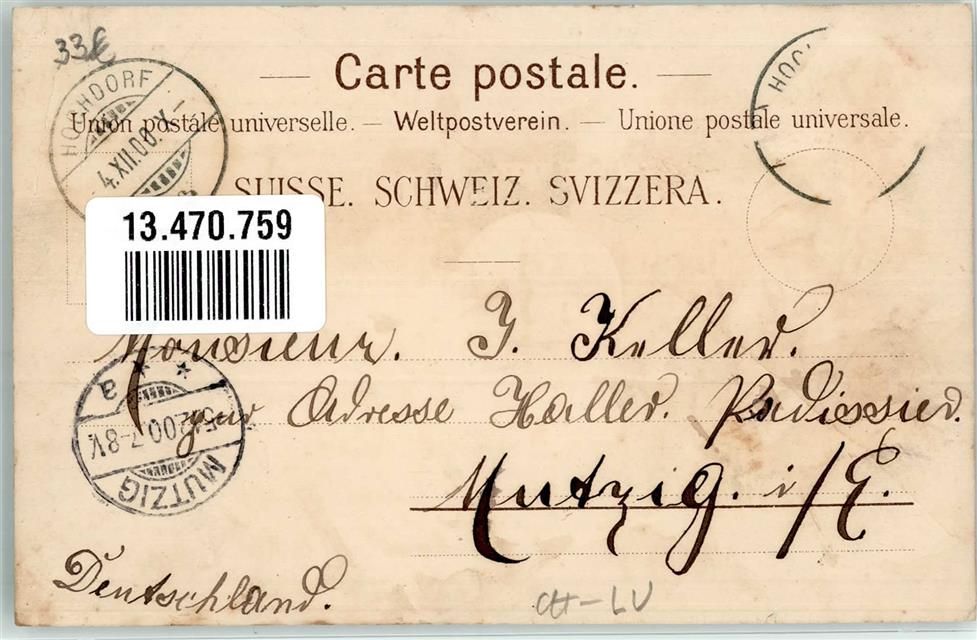 33£
HOCHDORF
4.XII.00.-V.-
HOCH
Carte postale.
Union postale universelle. — Weltpostverein. — Unione postale universale.
SUISSE. SCHWEIZ. SVIZZERA.
13.470.759
Monsieur. J. Keller.
par Adresse Haller. Padissier.
Mutzig. i/E.
MUTZIG
5.12.00.7-8V.
* * a
Deutschland.
CH-LU